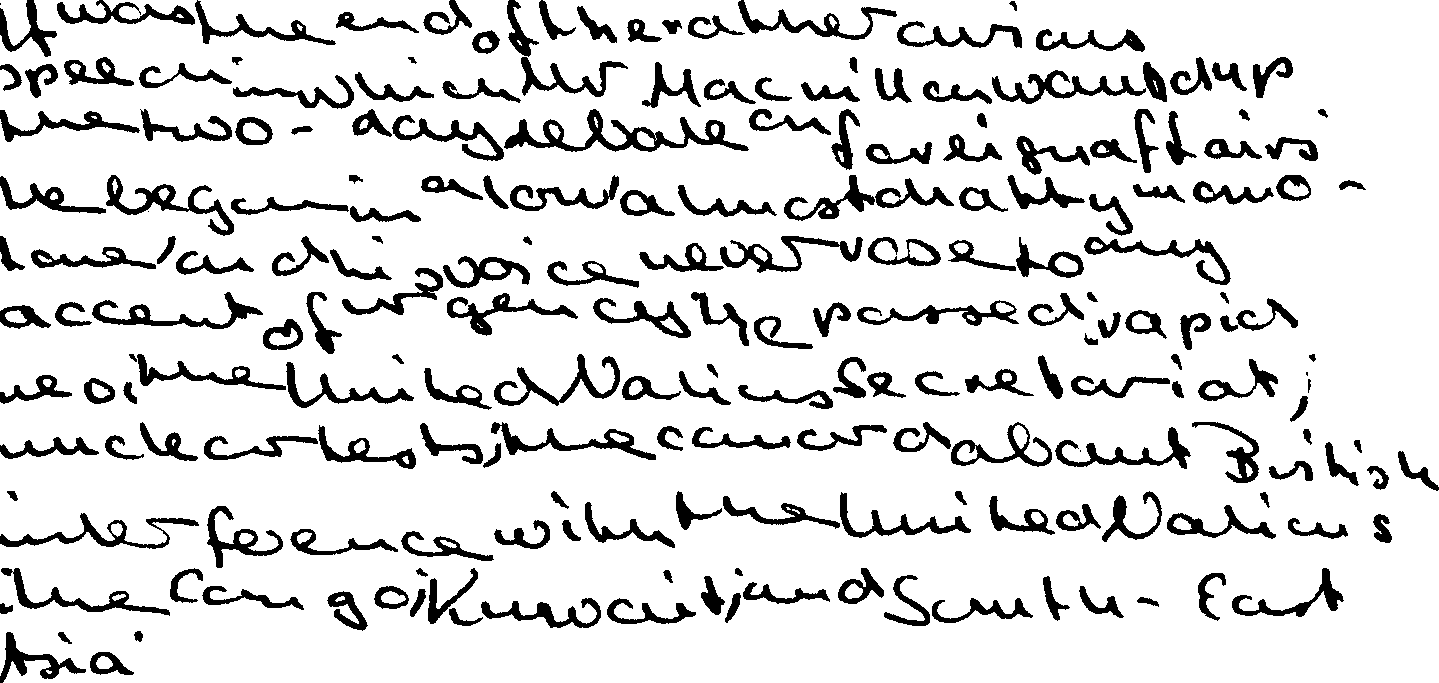 It was the end of the rather curious
speech in which Mr Macmillan wound up
the two-day debate on foreign affairs.
He began in a low, almost chatty mono-
tone, and his voice never rose to any
accent of urgency. He passed rapid
view of the United Nations Secretariat;
nuclear tests; the canard about British
interference with the United Nations
the Congo; Kuwait; and South-East
Asia.